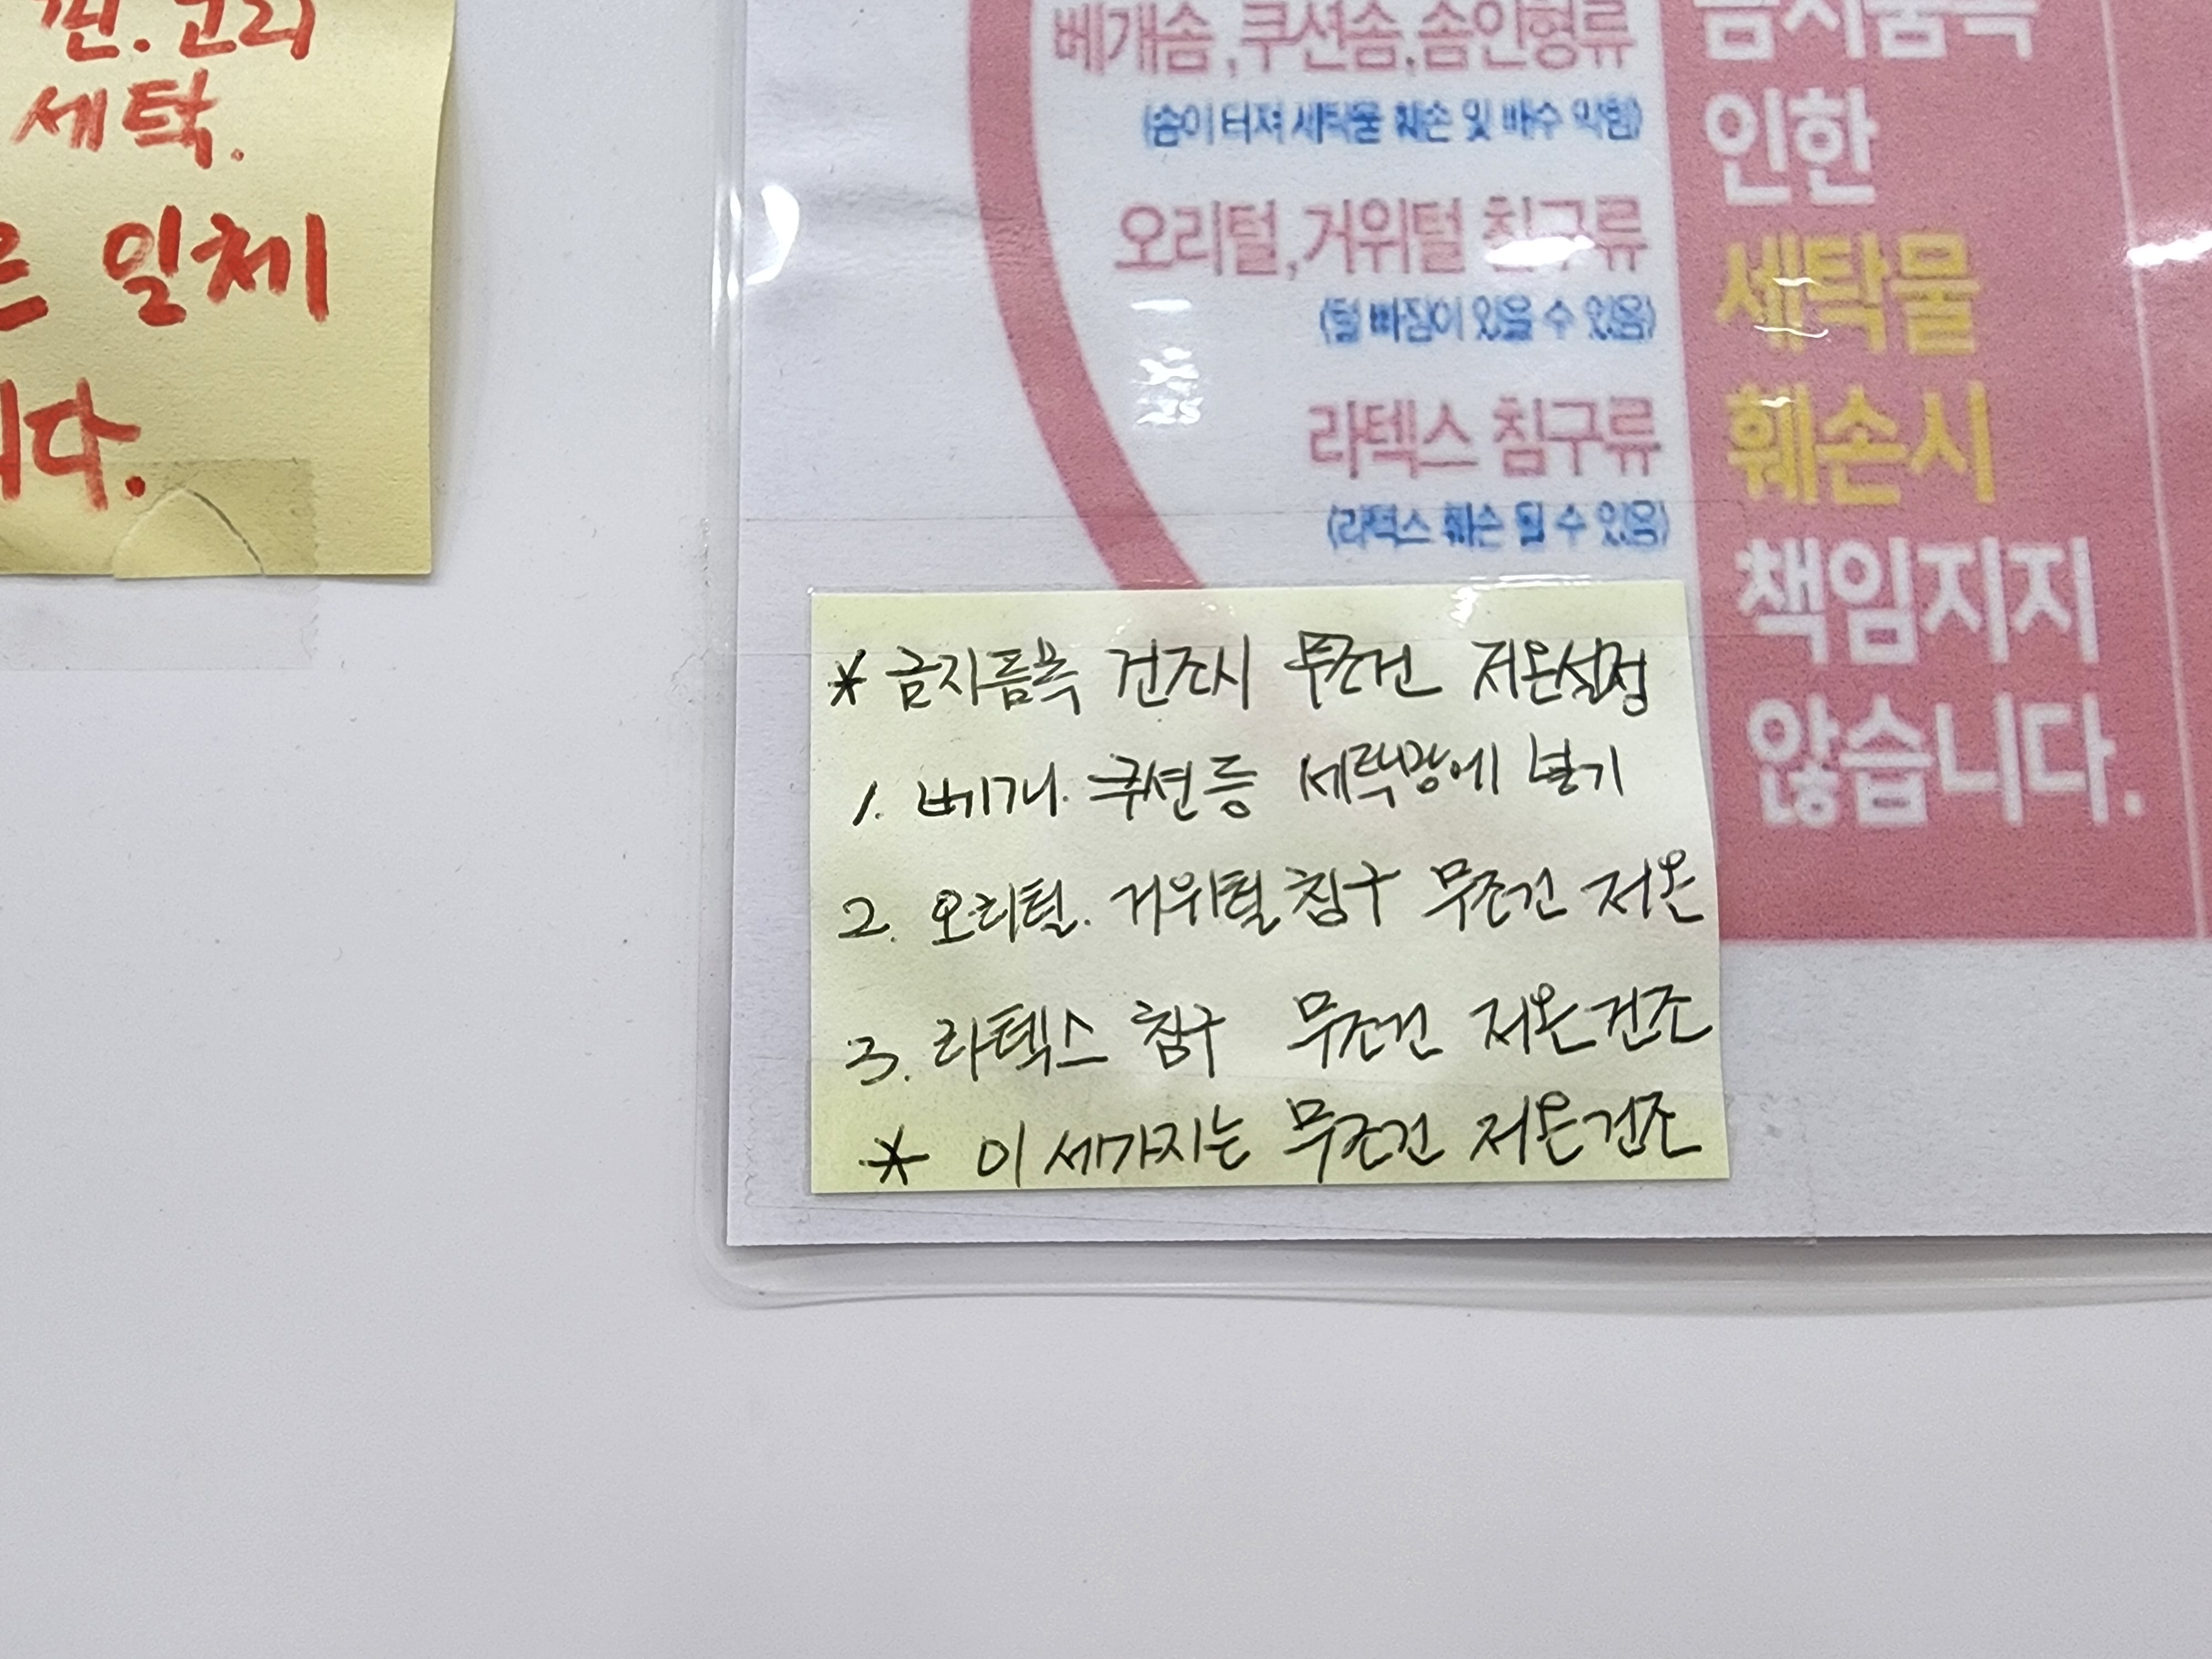 핀.고리
세탁.
일체
니다.
베개솜,쿠션솜,솜인형류
(솜이 터져 세탁물 훼손 및 배수 막힘)
오리털,거위털 침구류
(털 빠짐이 있을 수 있음)
라텍스 침구류
(라텍스 훼손 될 수 있음)
금지품목
인한
세탁물
훼손시
책임지지
않습니다.
* 금지품목 건조시 무조건 저온설정
1. 베개. 쿠션등 세탁망에 넣기
2. 오리털. 거위털 침구 무조건 저온
3. 라텍스 침구 무조건 저온건조
* 이 세가지는 무조건 저온건조